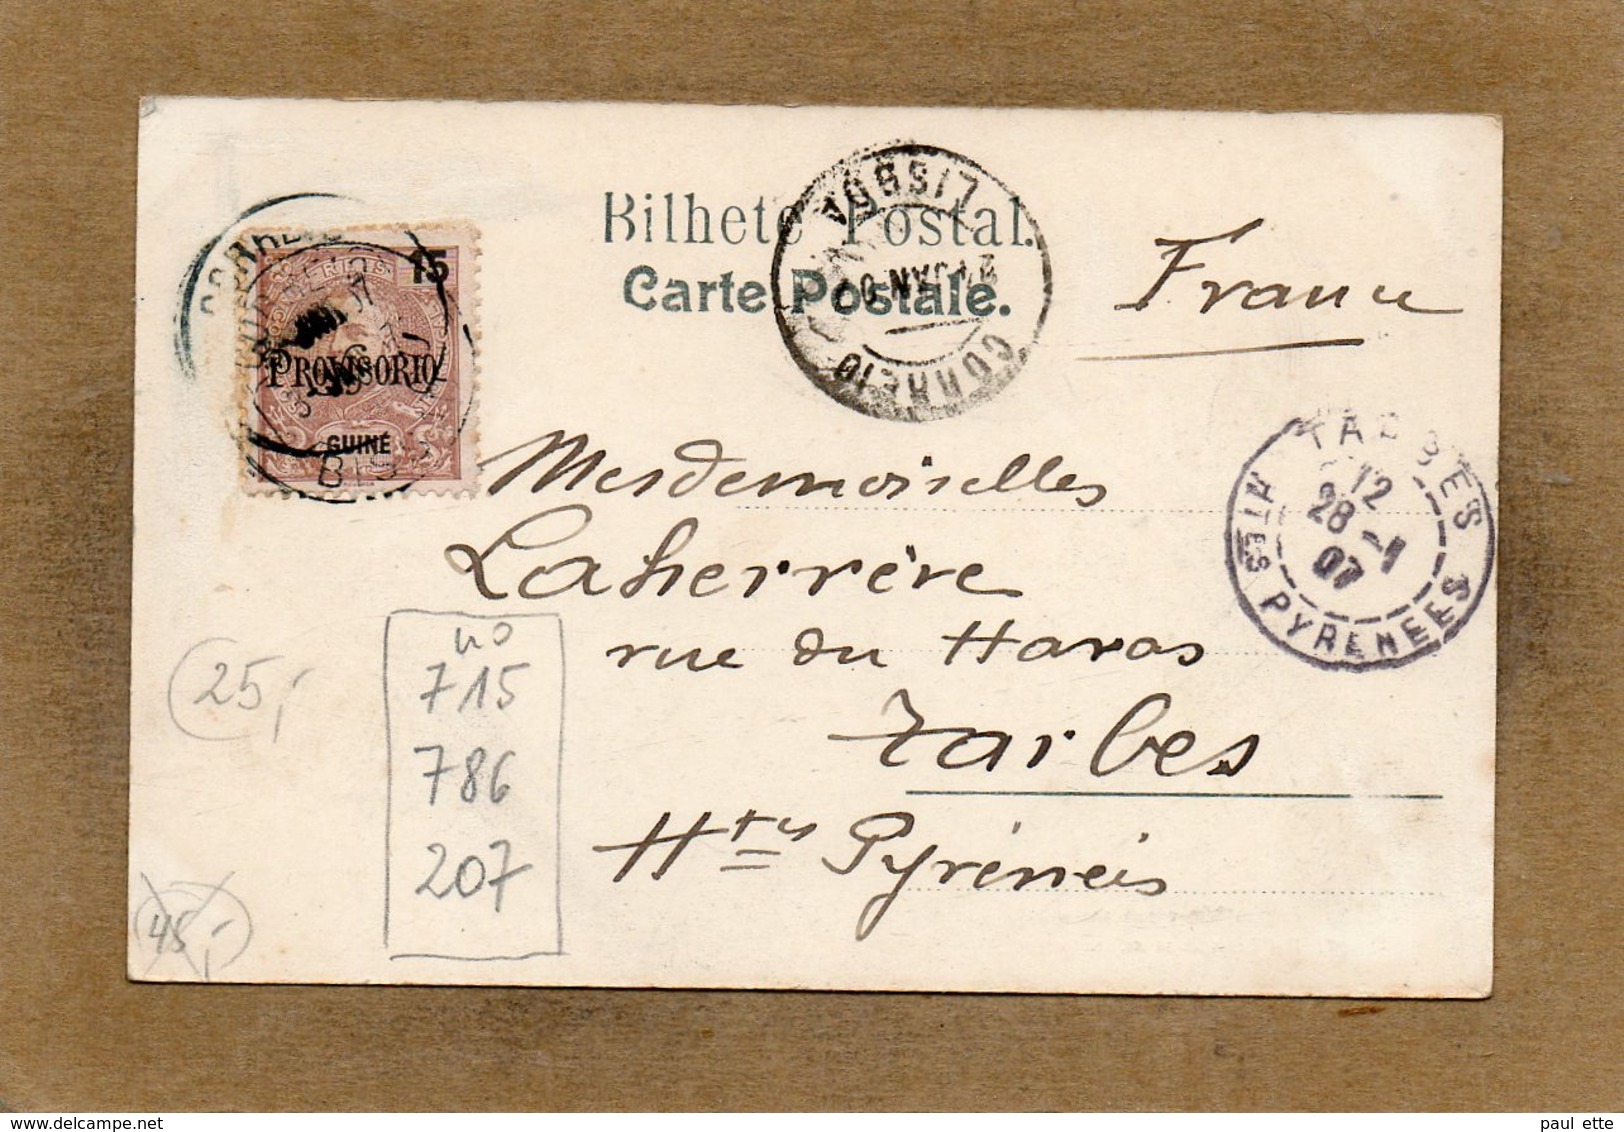 Bilhete Postal.
Carte Postale.
France
LISBOA
CORREIO
15
PROVISORIO
GUINÉ
BIS
Mesdemoiselles
Laherrère
rue du Haras
Tarbes
Htes Pyrénéis
TARBES
12
28 -1
07
HTES PYRENEES
no
715
786
207
25,-
45,-
paul ette